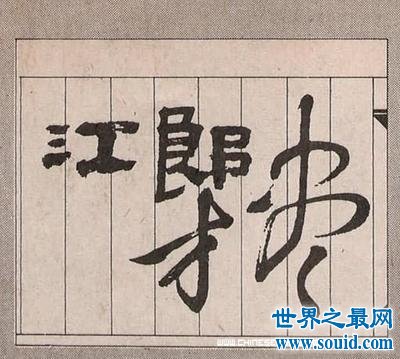 江郎才尽
世界之最网
www.souid.com